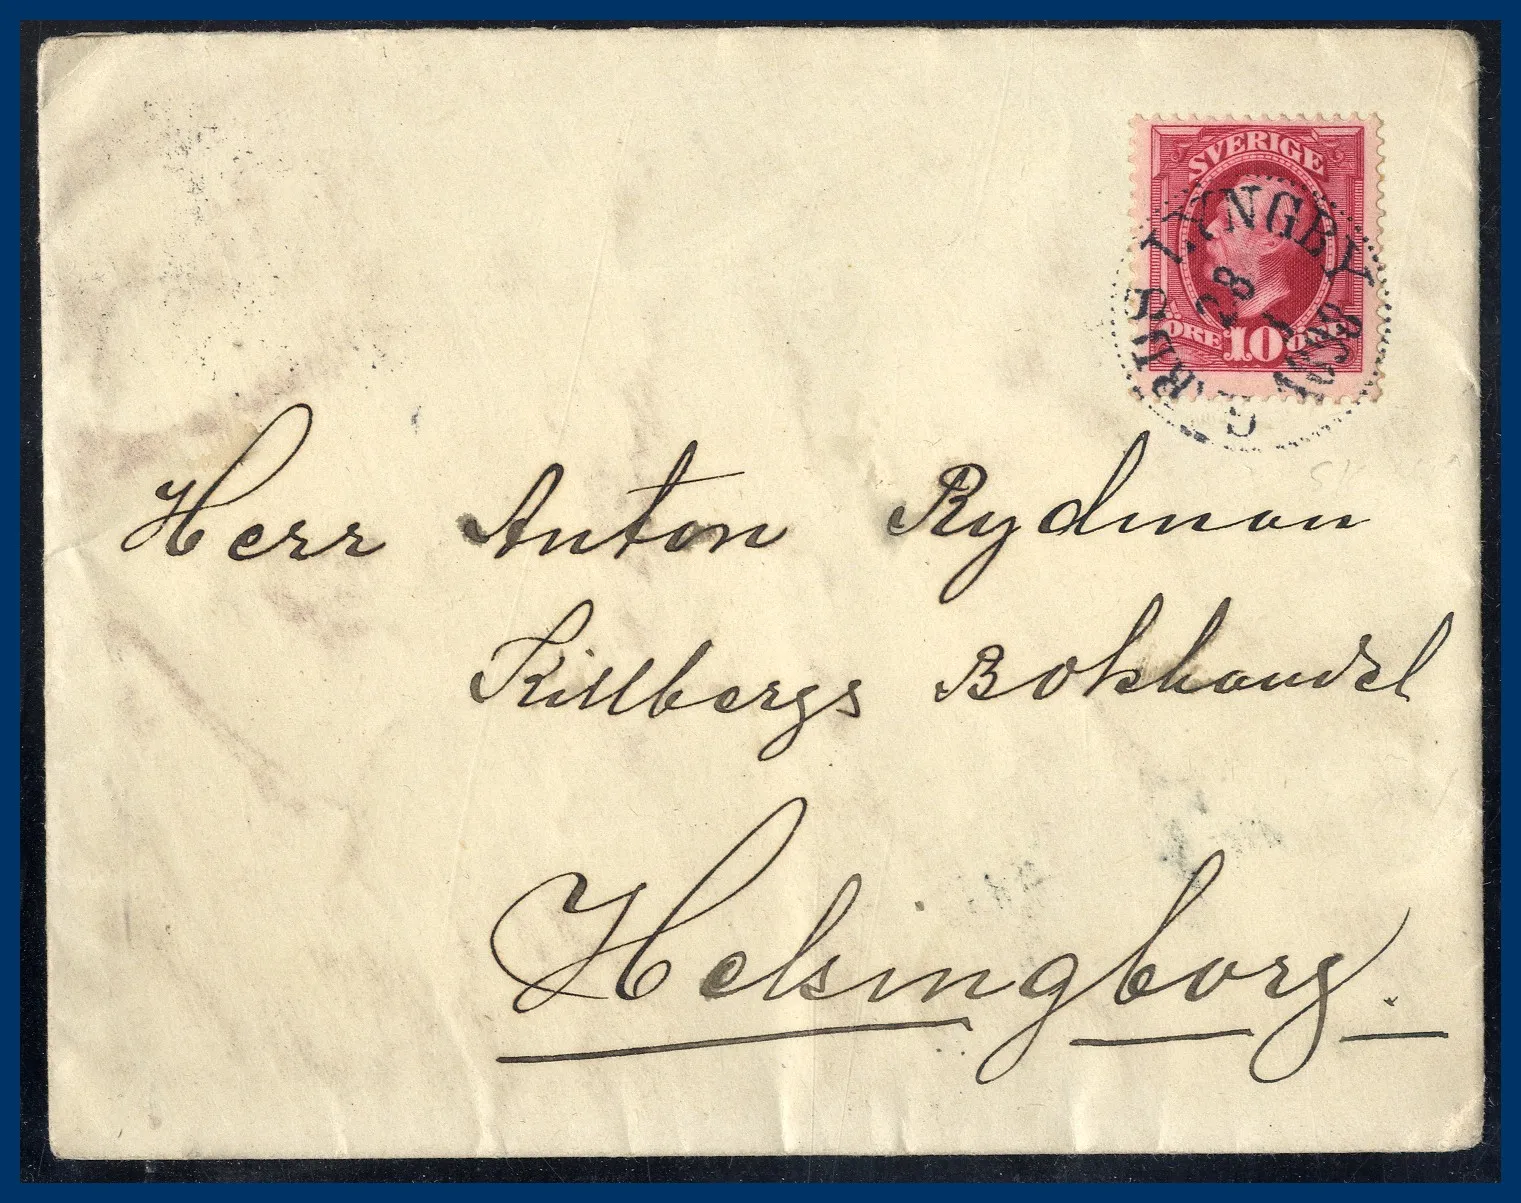 SVERIGE
ÖRE 10 ÖRE
GÄRDS LYNGBY
28
1
1898
Herr Anton Rydman
Killbergs Bokhandel
Helsingborg.